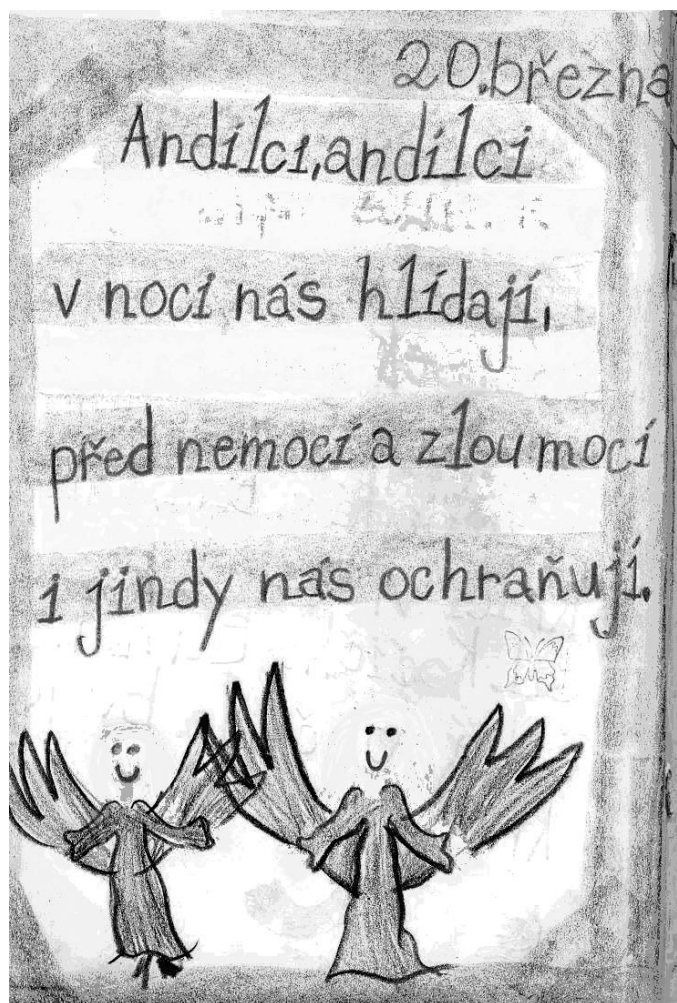 20.března
Andílci,andílci
v noci nás hlídají,
před nemocí a zlou mocí
i jindy nás ochraňují.